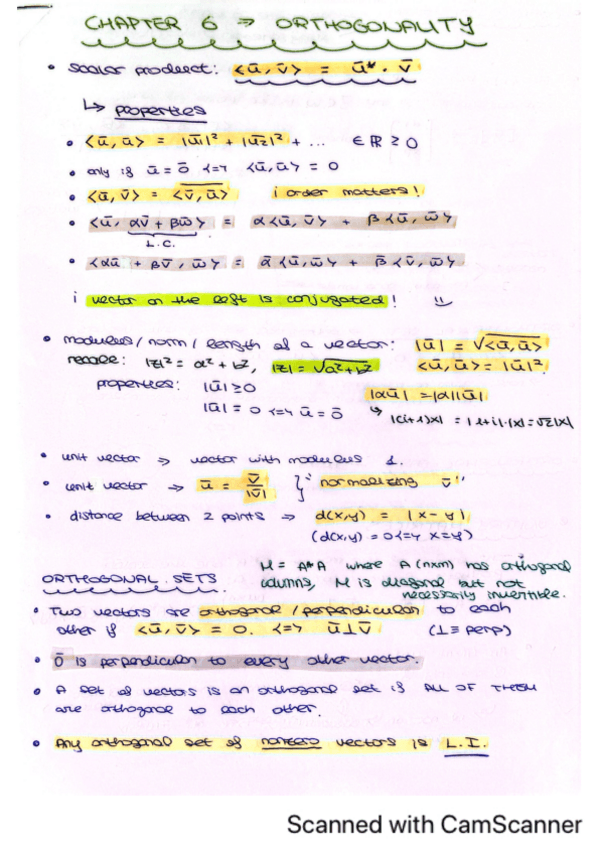 CHAPTER 6 ⇒ ORTHOGONALITY
• scalar product: <ū, v̄> = ū* · v̄
↳ properties
• <ū, ū> = |ū₁|² + |ū₂|² + ... ∈ ℝ ≥ 0
• only if ū = 0̄ <=> <ū, ū> = 0
• <ū, v̄> = \overline{<v̄, ū>} ¡ order matters!
• <ū, αv̄ + βw̄> = α<ū, v̄> + β<ū, w̄>
L.C.
• <αū + βv̄, w̄> = ᾱ<ū, w̄> + β̄<v̄, w̄>
¡ vector on the left is conjugated!
• modulus/norm/length of a vector: |ū| = √<ū, ū>
recall: |z|² = a² + b², |z| = √a²+b² <ū, ū> = |ū|².
properties: |ū| ≥ 0 |αū| = |α||ū|
|ū| = 0 <=> ū = 0̄ ↳ |(i+1)x| = |1+i|·|x| = √2|x|
• unit vector ⇒ vector with modulus 1.
• unit vector ⇒ ū = v̄/|v̄| } "normalizing v̄"
• distance between 2 points ⇒ d(x,y) = |x - y|
(d(x,y) = 0 <=> x=y)
M = A*A where A (nxm) has orthogonal
ORTHOGONAL SETS. columns, M is diagonal but not
necessarily invertible.
• Two vectors are orthogonal/perpendicular to each
other if <ū, v̄> = 0. <=> ū⊥v̄ (⊥ ≡ perp)
• 0̄ is perpendicular to every other vector.
• A set of vectors is an orthogonal set if ALL OF THEM
are orthogonal to each other.
• Any orthogonal set of nonzero vectors is L.I.
Scanned with CamScanner